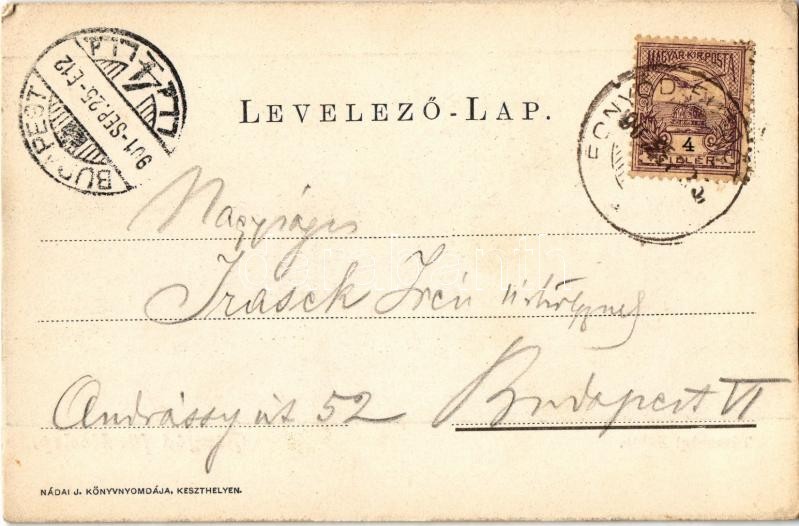 BUDAPEST
901-SEP.25-E12
LEVELEZŐ-LAP.
MAGYAR·KIR·POSTA
4
FILLÉR
FONYÓD
Nagyságos
Irasek Irén Úrhölgynek
Andrássy út 52 Budapest VI
NÁDAI J. KÖNYVNYOMDÁJA, KESZTHELYEN.